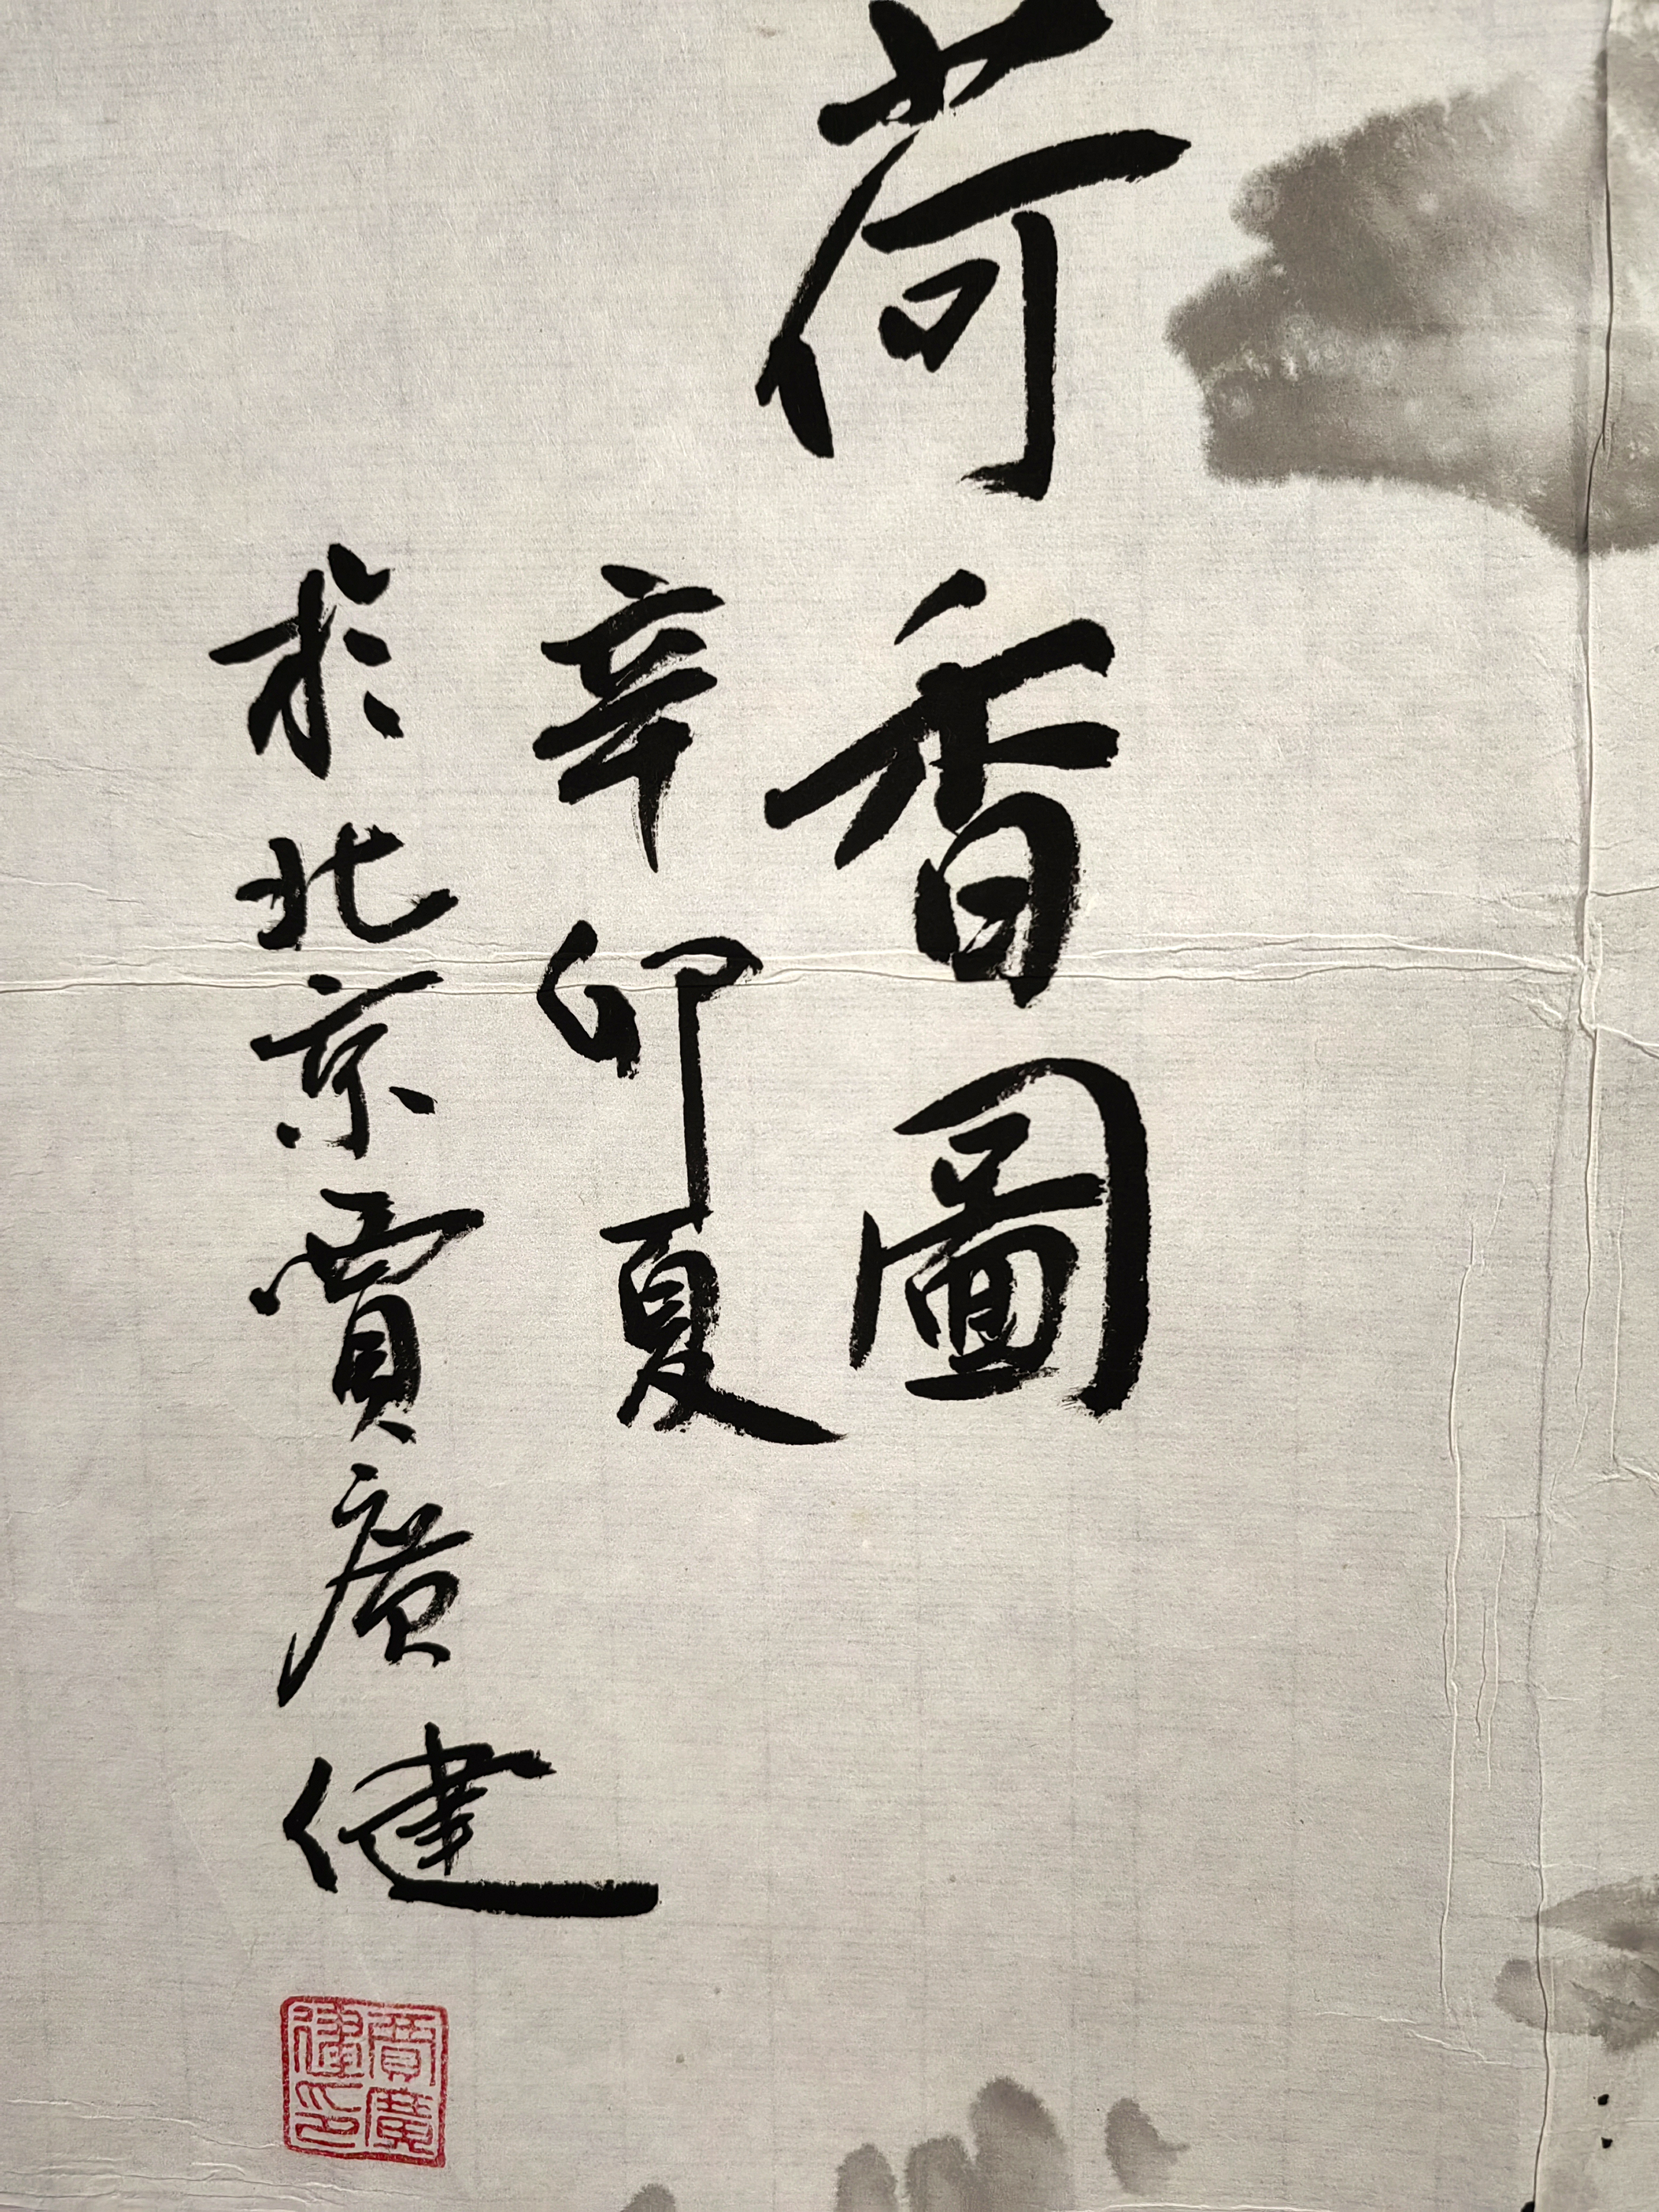 荷香圖
辛卯夏
於北京賈廣健
賈廣健印